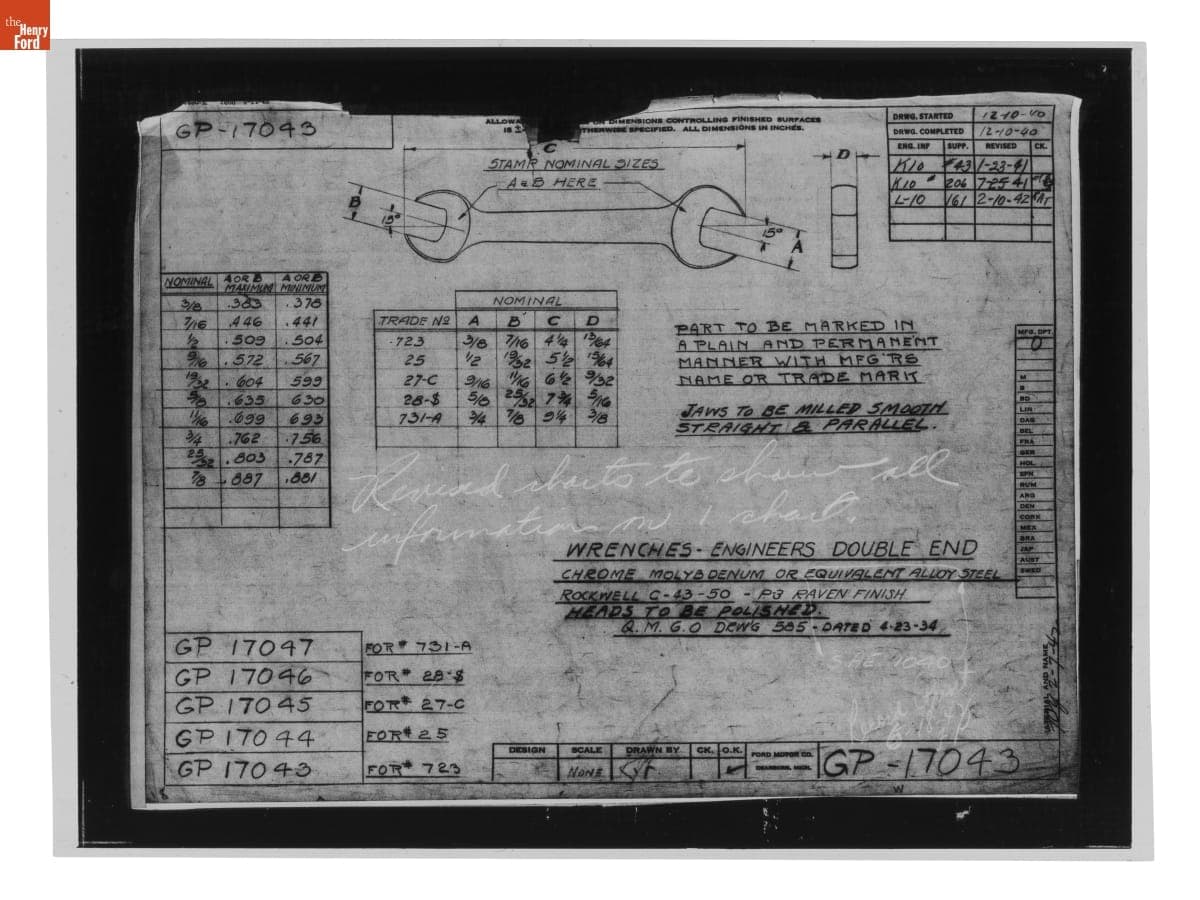 the
Henry
Ford
GP-17043
ALLOWA
ON DIMENSIONS CONTROLLING FINISHED SURFACES
IS
OTHERWISE SPECIFIED. ALL DIMENSIONS IN INCHES.
DRWG. STARTED 12-10-40
DRWG. COMPLETED 12-10-40
ENG. INF SUPP. REVISED CK.
K10 #43 1-23-41
K10 # 206 7-25-41
L-10 161 2-10-42
C
STAMP NOMINAL SIZES
A & B HERE
B
15°
15°
A
D
NOMINAL A OR B MAXIMUM A OR B MINIMUM
3/8 .383 .378
7/16 .446 .441
1/2 .509 .504
9/16 .572 .567
19/32 .604 599
5/8 .635 630
11/16 .699 693
3/4 .762 .756
25/32 .803 .787
7/8 .887 .881
NOMINAL
TRADE NO A B C D
723 3/8 7/16 4 1/4 13/64
25 1/2 19/32 5 1/2 15/64
27-C 9/16 11/16 6 1/2 9/32
28-S 5/8 25/32 7 3/4 5/16
731-A 3/4 7/8 9 1/4 3/8
PART TO BE MARKED IN
A PLAIN AND PERMANENT
MANNER WITH MFG'RS
NAME OR TRADE MARK
JAWS TO BE MILLED SMOOTH
STRAIGHT & PARALLEL.
MFG. DPT.
O
M
B
BD
LIN
DAG
BEL
FRA
GER
HOL
SPN
RUM
ARG
DEN
CORK
MEX
BRA
JAP
AUST
SWED
Revised charts to show all
information on 1 chart.
WRENCHES - ENGINEERS DOUBLE END
CHROME MOLYBDENUM OR EQUIVALENT ALLOY STEEL
ROCKWELL C-43-50 - P3 RAVEN FINISH
HEADS TO BE POLISHED.
Q.M.G.O DRW'G 585 - DATED 4-23-34
SAE 1040
GP 17047 FOR # 731-A
GP 17046 FOR # 28-S
GP 17045 FOR # 27-C
GP 17044 FOR # 25
GP 17043 FOR # 723
AND NAME
DESIGN SCALE DRAWN BY CK. O.K. FORD MOTOR CO.
DEARBORN, MICH.
NONE
GP-17043
W